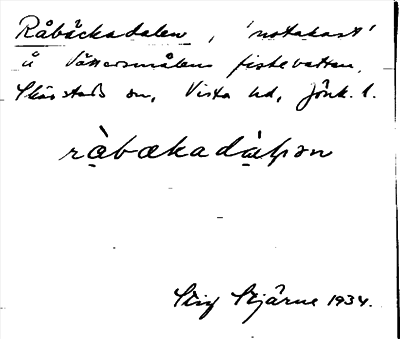 Råbäckadalen, 'notakast'
å Vättersmålens fiskevatten,
Skärstads sn, Vista hd, Jönk. l.
ràbækadàlən
Stig Stjärne 1934.